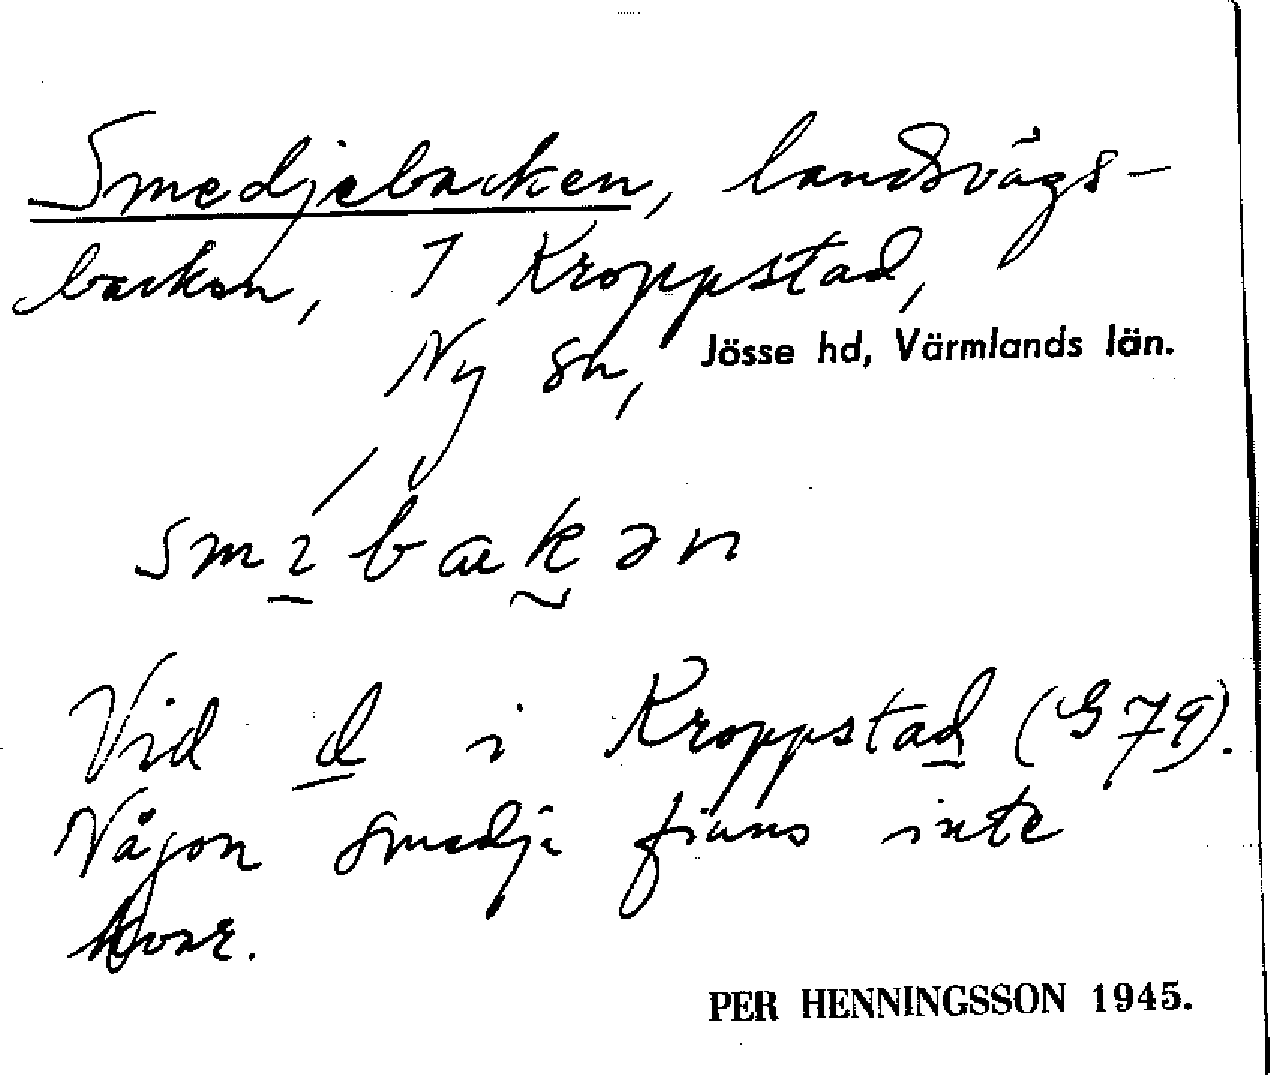 Smedjebacken, landsvägs-
backen, 7 Kroppstad,
Ny sn, Jösse hd, Värmlands län.
smibakən
Vid d i Kroppstad (G 79).
Någon smedja finns inte
kvar.
PER HENNINGSSON 1945.